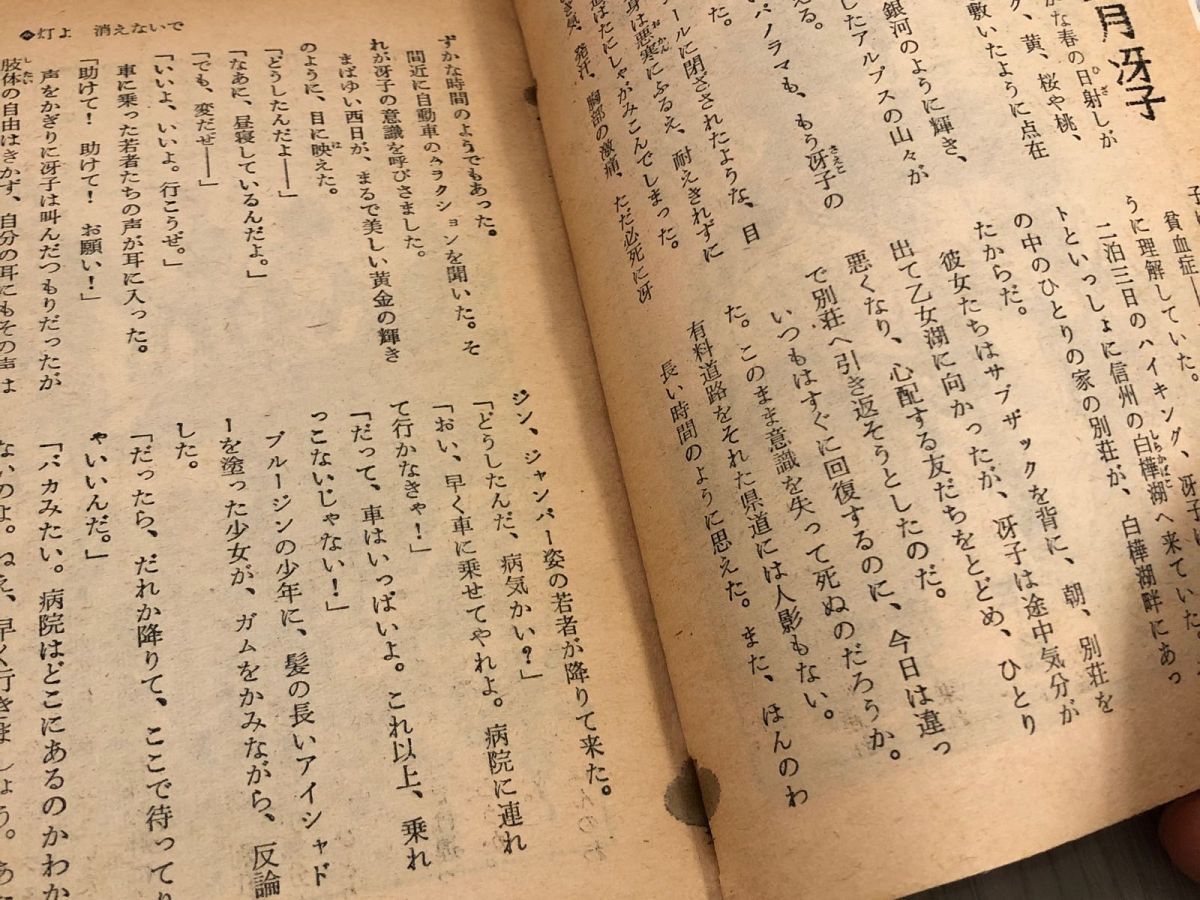 月冴子
かな春の日射しが
グ、黄、桜や桃、
敷いたように点在
銀河のように輝き、
したアルプスの山々が
える。
パノラマも、もう冴子の
た。
ールに閉ざされたような、目
身は悪寒にふるえ、耐えきれずに
道ばたにしゃがみこんでしまった。
発汗、胸部の激痛、ただ必死に冴
貧血症――
うに理解していた。
二泊三日のハイキング、冴子は
トといっしょに信州の白樺湖へ来ていた
の中のひとりの家の別荘が、白樺湖畔にあっ
たからだ。
彼女たちはサブザックを背に、朝、別荘を
出て乙女湖に向かったが、冴子は途中気分が
悪くなり、心配する友だちをとどめ、ひとり
で別荘へ引き返そうとしたのだ。
いつもはすぐに回復するのに、今日は違っ
た。このまま意識を失って死ぬのだろうか。
有料道路をそれた県道には人影もない。
長い時間のように思えた。また、ほんのわ
灯よ 消えないで
ずかな時間のようでもあった。
間近に自動車のクラクションを聞いた。そ
れが冴子の意識を呼びさました。
まばゆい西日が、まるで美しい黄金の輝き
のように、目に映えた。
「どうしたんだよ――」
「なあに、昼寝しているんだよ。」
「でも、変だぜ――」
「いいよ、いいよ。行こうぜ。」
車に乗った若者たちの声が耳に入った。
「助けて！ 助けて！ お願い！」
声をかぎりに冴子は叫んだつもりだったが
肢体の自由はきかず、自分の耳にもその声は
ジン、ジャンパー姿の若者が降りて来た。
「どうしたんだ、病気かい？」
「おい、早く車に乗せてやれよ。病院に連れ
て行かなきゃ！」
「だって、車はいっぱいよ。これ以上、乗れ
っこないじゃない！」
ブルージンの少年に、髪の長いアイシャド
ーを塗った少女が、ガムをかみながら、反論
した。
「だったら、だれか降りて、ここで待ってり
ゃいいんだ。」
「バカみたい。病院はどこにあるのかわか
ないのよ。ねえ、早く行きましょう。あ